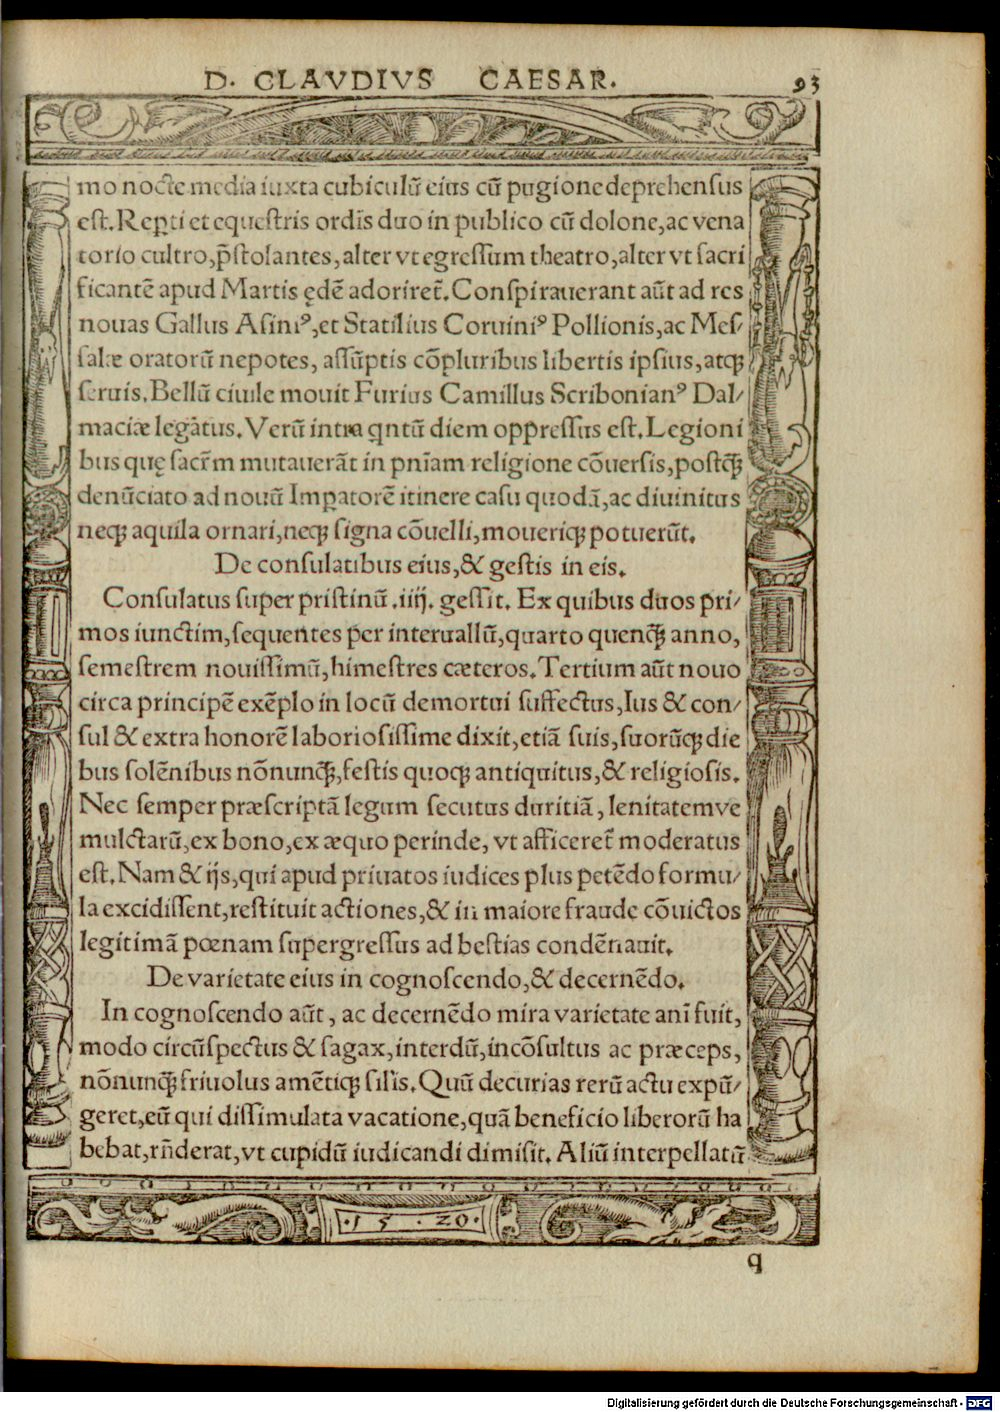 D. CLAVDIVS CAESAR. 93
mo nocte media iuxta cubiculū eius cū pugione deprehensus
est. Reꝑti et equestris ordīs duo in publico cū dolone, ac vena
torio cultro, p̄stolantes, alter vt egressum theatro, alter vt sacri
ficantē apud Martis ędē adoriret̄. Conspirauerant aūt ad res
nouas Gallus Asiniꝰ, et Statilius Coruiniꝰ Pollionis, ac Mes/
salæ oratorū nepotes, assūptis cōpluribus libertis ipsius, atqꝫ
seruis. Bellū ciuile mouit Furius Camillus Scribonianꝰ Dal/
maciæ legatus. Verū intra qntū diem oppressus est. Legioni
bus quę sacr̄m mutauerāt in pnīam religione cōuersis, postqꝫ̄
denūciato ad nouū Imꝑatorē itinere casu quodā, ac diuinitus
neqꝫ aquila ornari, neqꝫ signa cōuelli, moueriqꝫ potuerūt.
De consulatibus eius, & gestis in eis.
Consulatus super pristinū .iiij. gessit. Ex quibus duos pri/
mos iunctim, sequentes per interuallū, quarto quenqꝫ̄ anno,
semestrem nouissimū, himestres cæteros. Tertium aūt nouo
circa principē exēplo in locū demortui suffectus, Ius & con/
sul & extra honorē laboriosissime dixit, etiā suis, suorūqꝫ die
bus solēnibus nōnunqꝫ̄, festis quoqꝫ antiquitus, & religiosis.
Nec semper præscriptā legum secutus duritiā, lenitatemve
mulctarū, ex bono, ex æquo perinde, vt afficeret̄ moderatus
est. Nam & ijs, qui apud priuatos iudices plus petēdo formu/
la excidissent, restituit actiones, & in maiore fraude cōuictos
legitimā pœnam supergressus ad bestias condēnauit.
De varietate eius in cognoscendo, & decernēdo.
In cognoscendo aūt, ac decernēdo mira varietate anī fuit,
modo circūspectus & sagax, interdū, incōsultus ac præceps,
nōnunqꝫ̄ friuolus amētiqꝫ silīs. Quū decurias rerū actu expū/
geret, eū qui dissimulata vacatione, quā beneficio liberorū ha
bebat, rn̄derat, vt cupidū iudicandi dimisit. Aliū interpellatū
.15.20.
q
Digitalisierung gefördert durch die Deutsche Forschungsgemeinschaft - DFG